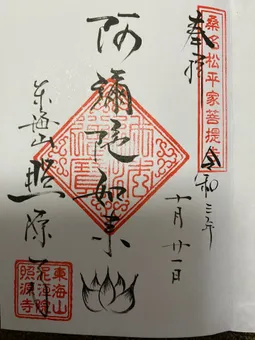 奉拝
桑名松平家菩提寺
令和三年
十月廿一日
阿彌陀如来
東海山 照源寺
東海山
泥洹院
照源寺